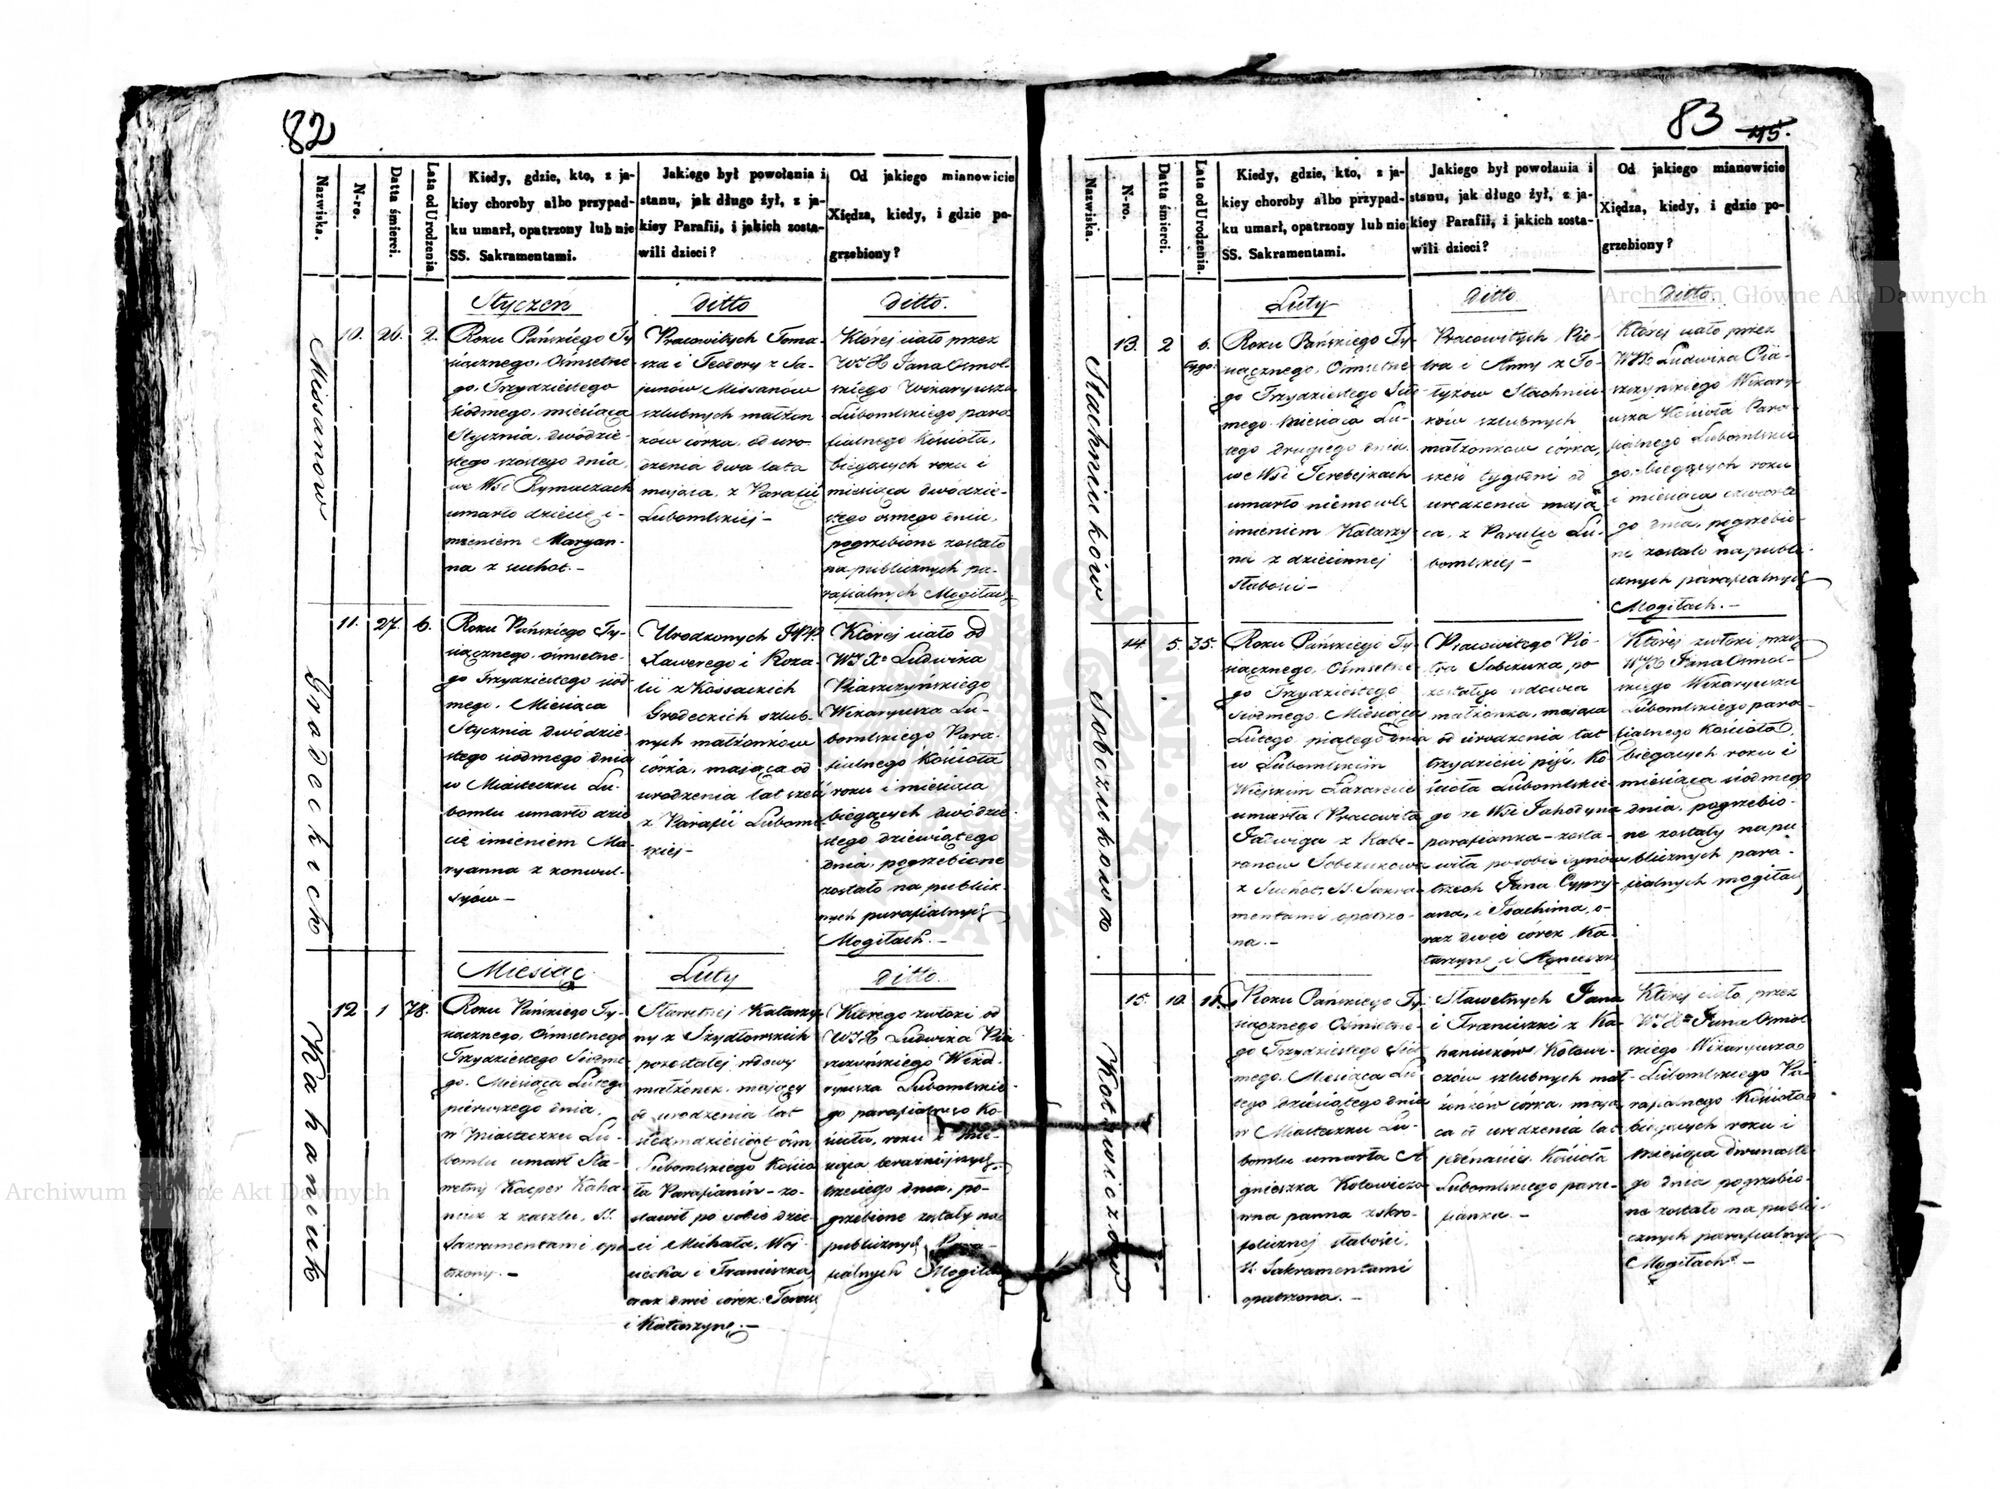 82
Nazwiska.
N-ro.
Datta śmierci.
Lata od Urodzenia.
Kiedy, gdzie, kto, z ja-
kiey choroby albo przypad-
ku umarł, opatrzony lub nie
SS. Sakramentami.
Jakiego był powołania i
stanu, jak długo żył, z ja-
kiey Parafii, i jakich zosta-
wili dzieci?
Od jakiego mianowicie
Xiędza, kiedy, i gdzie po-
grzebiony?
Styczeń
ditto
ditto.
Missanow
10.
26.
2.
Roku Pańskiego Ty
siącznego, Ośmsetne
go, Trzydziestego
siódmego, miesiąca
Stycznia, dwódzie-
stego szostego dnia,
we Wsi Rymaczach
umarło dziecię i-
mieniem Maryan-
na z suchot. -
Pracowitych Toma-
sza i Teodory z Sa-
junów Missanów
szlubnych małżon
ków córka, od uro
dzenia dwa lata
maiąca, z Parafii
Lubomlskiej -
Której ciało przez
WJX Jana Osmol-
skiego Wikaryusza
Lubomlskiego para
fialnego Kościoła,
bieżących roku i
miesiąca dwódzie-
stego osmego dnia,
pogrzebione zostało
na publicznych pa-
rafialnych Mogiłach
Grodeckich
11.
27.
6.
Roku Pańskiego Ty-
siącznego, ośmsetne-
go Trzydziestego siód
mego, Miesiąca
Stycznia dwódzie-
stego siodmego dnia
w Miasteczku Lu-
bomlu umarło dzie
cię imieniem Ma-
ryanna z konwul-
syów -
Urodzonych JPP.
Xawerego i Roza-
lii z Kossackich
Grodeckich szlub-
nych małżonków
córka, maiąca od
urodzenia lat szesc
z Parafii Luboml
skiej -
Której ciało od
WJX Ludwika
Piaszczyńskiego
Wikaryusza Lu-
bomlskiego Para-
fialnego Kościoła
roku i miesiąca
bieżących dwódzie
stego dziewiątego
dnia, pogrzebione
zostało na publicz-
nych parafialnych
Mogiłach. -
Miesiąc
Luty
ditto.
Kahaniuk
12
1
78.
Roku Pańskiego Ty-
siącznego, Ośmsetnego
Trzydziestego Siódme
go, Miesiąca Lutego
pierwszego dnia,
w Miasteczku Lu-
bomlu umarł Sła-
wetny Kacper Kaha
niuk z kaszlu, SS.
Sakramentami opa
trzony. -
Sławetnej Katarzy-
ny z Szydłowskich
pozostałej wdowy
małżonek, maiący
od urodzenia lat
siedmdziesiąt ośm
Lubomlskiego Kościo
ła Parafianin - zo-
stawił po sobie dzie-
ci Michała, Woj-
ciecha i Franciszka,
oraz dwie córek Teresę
i Katarzynę. -
Którego zwłoki od
WJX Ludwika Pia
szczyńskiego Wika-
ryusza Lubomlskie-
go parafialnego Ko-
ścioła, roku i mie-
siąca teraźniejszych
trzeciego dnia, po-
grzebione zostały na
publicznych Para-
fialnych Mogiłach
83
45.
Nazwiska.
N-ro.
Datta śmierci.
Lata od Urodzenia.
Kiedy, gdzie, kto, z ja-
kiey choroby albo przypad-
ku umarł, opatrzony lub nie
SS. Sakramentami.
Jakiego był powołania i
stanu, jak długo żył, z ja-
kiey Parafii, i jakich zosta-
wili dzieci?
Od jakiego mianowicie
Xiędza, kiedy, i gdzie po-
grzebiony?
Luty
ditto
ditto.
Stachniuków
13.
2
6.
tygo:
Roku Pańskiego Ty-
siącznego, Ośmsetne
go Trzydziestego Siód
mego, Miesiąca Lu-
tego drugiego dnia
we Wsi Terebejkach
umarło niemowle
imieniem Katarzy
na z dziecinnej
słabości -
Pracowitych Pio-
tra i Anny z Fo-
tyzow Stachniu-
ków szlubnych
małżonków córka,
sześć tygodni od
urodzenia mają-
ca, z Parafii Lu-
bomlskiej -
Której ciało przez
WJX Ludwika Pia-
szczyńskiego Wikary-
usza Kościoła Para-
fialnego Lubomlskie
go, bieżących roku
i miesiąca czwarte
go dnia, pogrzebio-
ne zostało na publi-
cznych parafialnych
Mogiłach. -
Sobczukowa
14.
5.
35.
Roku Pańskiego Ty-
siącznego, Ośmsetne
go Trzydziestego
siódmego, Miesiąca
Lutego, piątego dnia
w Lubomlskim
Wiejskim Lazarecie
umarła Pracowita
Jadwiga z Kabe-
ranow Sobczukowa
z Suchot, SS. Sakra-
mentami opatrzo-
na. -
Pracowitego Pio-
tra Sobczuka, po
zostałego wdowca
małżonka, maiąca
od urodzenia lat
trzydzieści pięć, Ko
ścioła Lubomlskie
go ze Wsi Jahodyna
parafianka - zosta-
wiła po sobie synów
trzech Jana Cypry-
ana, i Joachima, o-
raz dwie córek Ka-
tarzynę i Agnieszkę
Której zwłoki przez
WJX Jana Osmol-
skiego Wikaryusza
Lubomlskiego para-
fialnego Kościoła,
bieżących roku i
miesiąca siódmego
dnia, pogrzebio-
ne zostały na pu
blicznych para-
fialnych mogiłach
Kotowiczów
15.
10.
Roku Pańskiego Ty-
siącznego Ośmsetne-
go Trzydziestego Siód
mego, Miesiąca Lu
tego dziesiątego dnia
w Miasteczku Lu-
bomlu umarła A
gnieszka Kotowiczo
wna panna z skro-
folicznej słabości,
SS. Sakramentami
opatrzona. -
Sławetnych Jana
i Franciszki z Ka-
haniuków Kotowi-
czów szlubnych mał-
żonków córka, mają
ca od urodzenia lat
Kościoła
Lubomlskiego para-
fianka -
Której ciało, przez
WJX Jana Osmol
skiego Wikaryusza
Lubomlskiego Pa-
rafialnego Kościoła
bieżących roku i
miesiąca dwunaste
go dnia pogrzebio-
ne zostało na publi-
cznych parafialnych
Mogiłach -
Archiwum Główne Akt Dawnych
Archiwum Główne Akt Dawnych